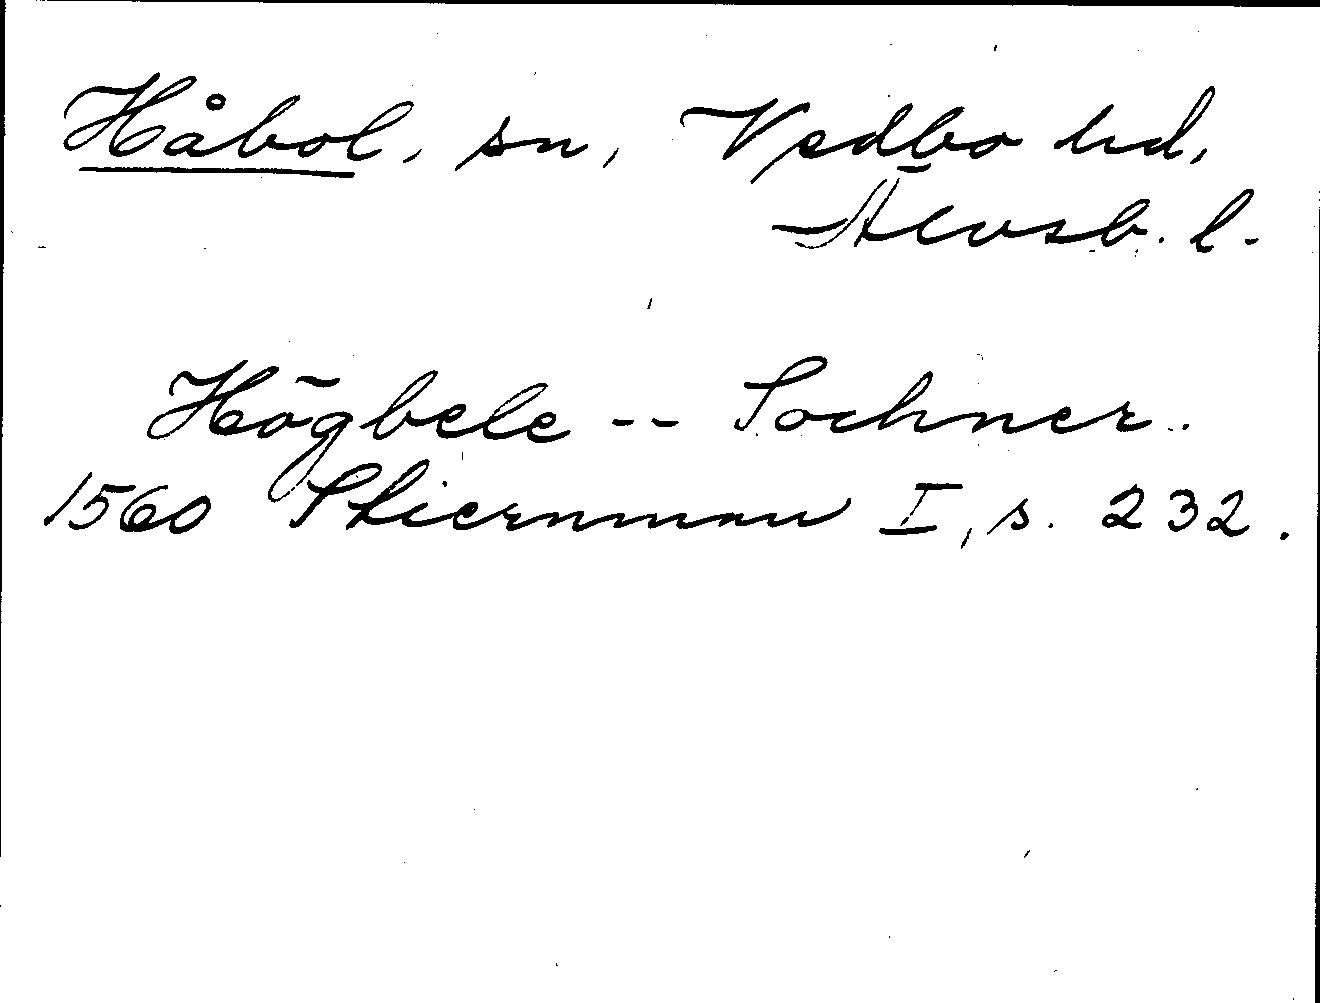 Håbol, sn, Vedbo hd,
Älvsb. l.
Högbele -- Sochner.
1560 Stiernman I, s. 232.